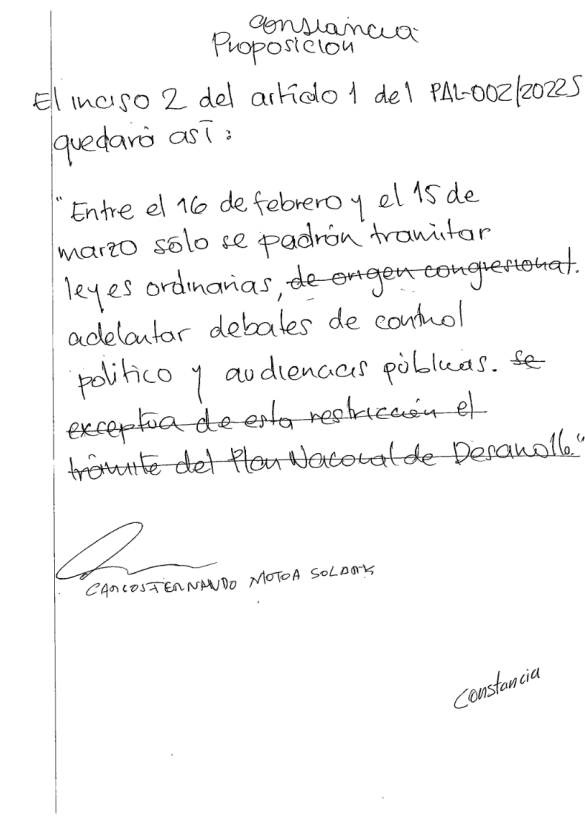 Constancia
Proposicion
El inciso 2 del artículo 1 del PAL-002/2022S
quedará así:
"Entre el 16 de febrero y el 15 de
marzo sólo se padrón tramitar
leyes ordinarias, de origen congresional.
adelantar debates de control
politico y audiencias públicas. se
exceptúa de esta restricción el
trámite del Plan Nacional de Desarrollo."
CARLOS FERNANDO MOTOA SOLARTE
Constancia